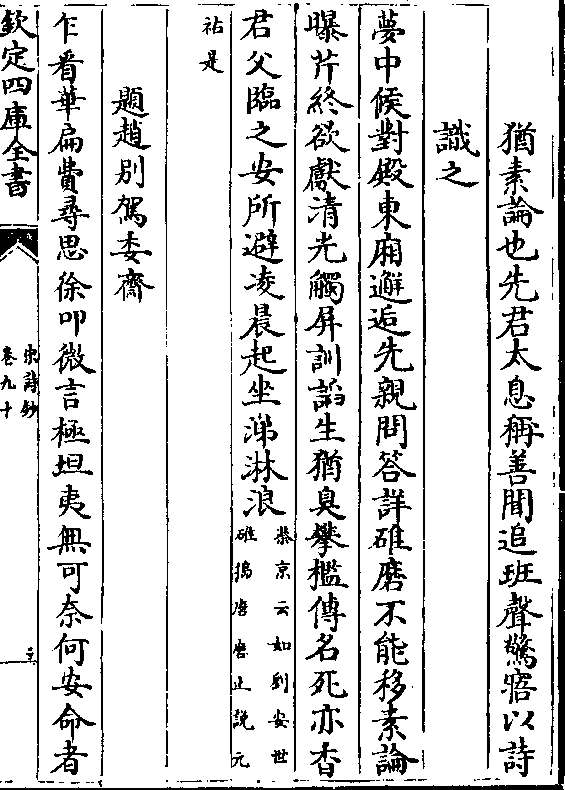 猶素論也先君太息稱善聞追班聲驚寤以詩
識之
夢中候對殿東廂邂逅先親問答詳碓磨不能移素論
曝芹終欲獻清光觸屏訓謟生猶臭攀檻傳名死亦香
君父臨之安所避凌晨起坐涕淋浪
蔡京云如劉安世
碓搗磨磨止說元
祐是
題趙别駕委齋
乍看華扁費尋思徐叩微言極坦夷無可奈何安命者
欽定四庫全書
宋詩鈔
卷九十